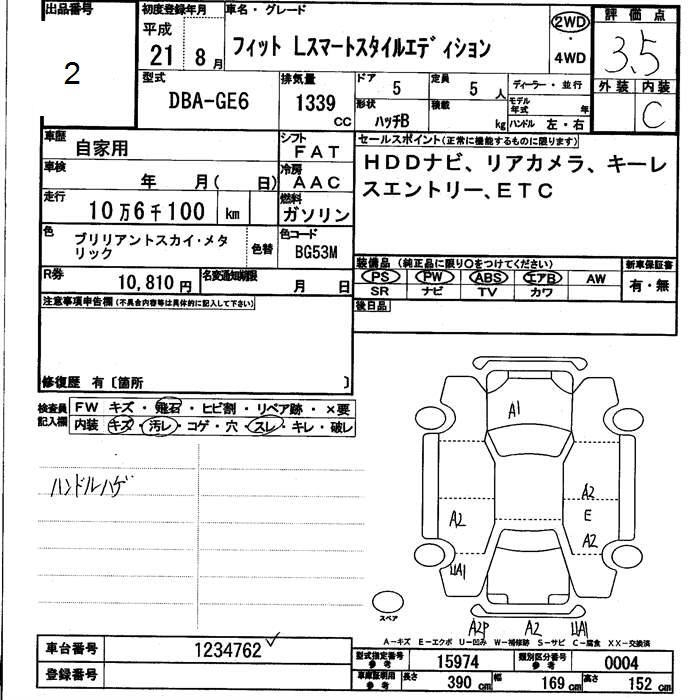 出品番号
2
初度登録年月
平成
21 8 月
車名・グレード
フィット Lスマートスタイルエディション
2WD
・
4WD
評価点
3.5
外装 内装
C
型式
DBA-GE6
排気量
1339
CC
ドア
5
定員
5 人
ディーラー・並行
形状
ハッチB
積載
kg
モデル年式 年
ハンドル 左・右
車歴
自家用
シフト
FAT
車検
年 月( 日)
冷房
AAC
走行
10万6千100 km
燃料
ガソリン
色
ブリリアントスカイ・メタ
リック
色替
色コード
BG53M
R券
10,810 円
名変通知期限
月 日
セールスポイント(正常に機能するものに限ります)
HDDナビ、リアカメラ、キーレ
スエントリー、ETC
装備品(純正品に限り○をつけてください)
PS PW ABS エアB AW
SR ナビ TV カワ
新車保証書
有・無
後日品
注意事項申告欄(不具合内容等は具体的に記入して下さい)
修復歴 有〔箇所 〕
検査員
記入欄
FW キズ・飛石・ヒビ割・リペア跡・×要
内装 キズ・汚レ・コゲ・穴・スレ・キレ・破レ
ハンドルハゲ
A1
A2
A2
E
A2
UA1
スペア
A2P A2 UA1
A-キズ E-エクボ U-凹み W-補修跡 S-サビ C-腐食 XX-交換済
車台番号
1234762
登録番号
型式指定番号
参考
15974
類別区分番号
参考
0004
車庫証明用
参考
長さ 390 cm 幅 169 cm 高さ 152 cm